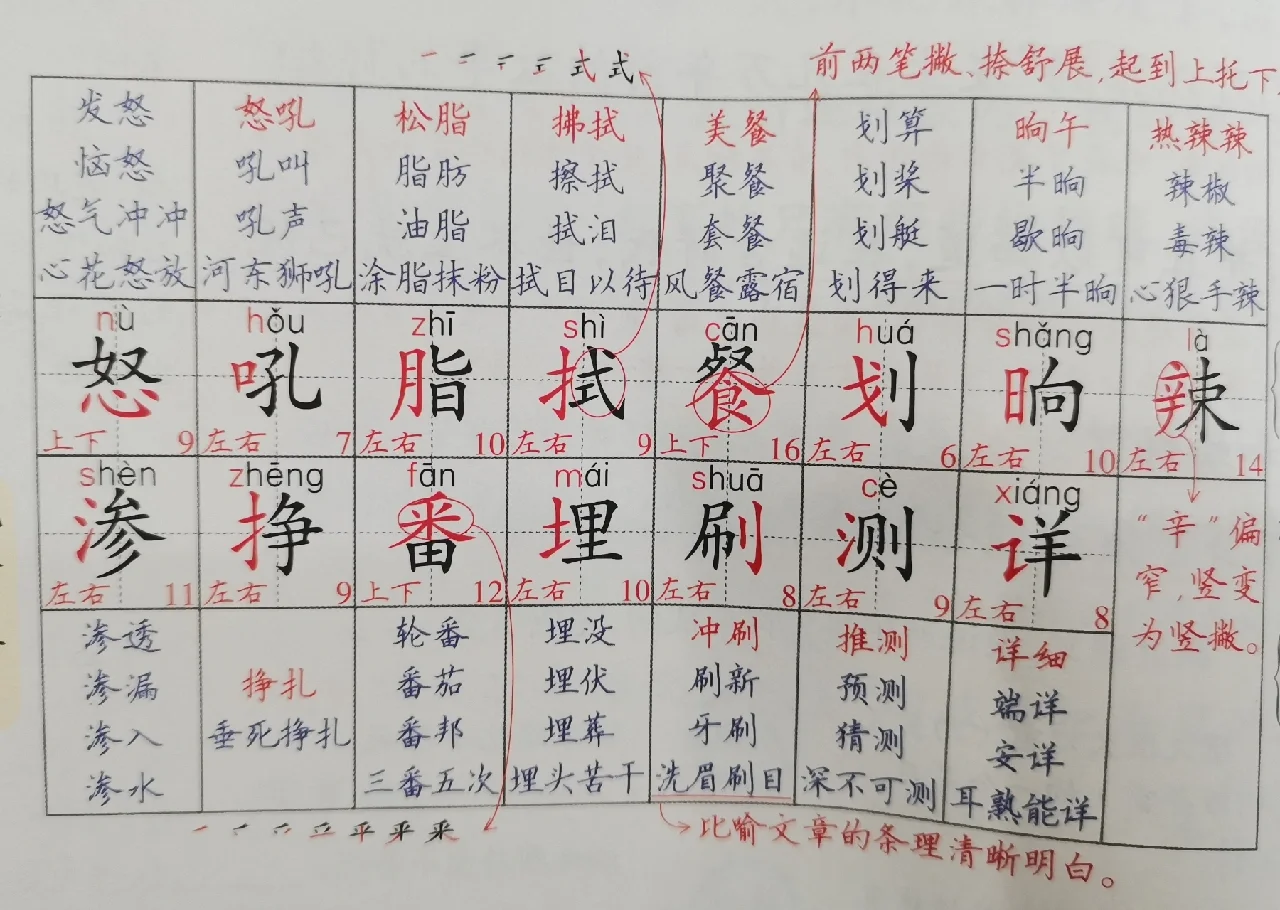 一 二 三 三 式 式
前两笔撇、捺舒展,起到上托下
发怒 怒吼 松脂 拂拭 美餐 划算 晌午 热辣辣
恼怒 吼叫 脂肪 擦拭 聚餐 划桨 半晌 辣椒
怒气冲冲 吼声 油脂 拭泪 套餐 划艇 歇晌 毒辣
心花怒放 河东狮吼 涂脂抹粉 拭目以待 风餐露宿 划得来 一时半晌 心狠手辣
nù hǒu zhī shì cān huá shǎng là
怒 吼 脂 拭 餐 划 晌 辣
上下 9 左右 7 左右 10 左右 9 上下 16 左右 6 左右 10 左右 14
shèn zhēng fān mái shuā cè xiáng
渗 挣 番 埋 刷 测 详
左右 11 左右 9 上下 12 左右 10 左右 8 左右 9 左右 8
“辛”偏
窄,竖变
为竖撇。
渗透 轮番 埋没 冲刷 推测 详细
渗漏 挣扎 番茄 埋伏 刷新 预测 端详
渗入 垂死挣扎 番邦 埋葬 牙刷 猜测 安详
渗水 三番五次 埋头苦干 洗眉刷目 深不可测 耳熟能详
比喻文章的条理清晰明白。